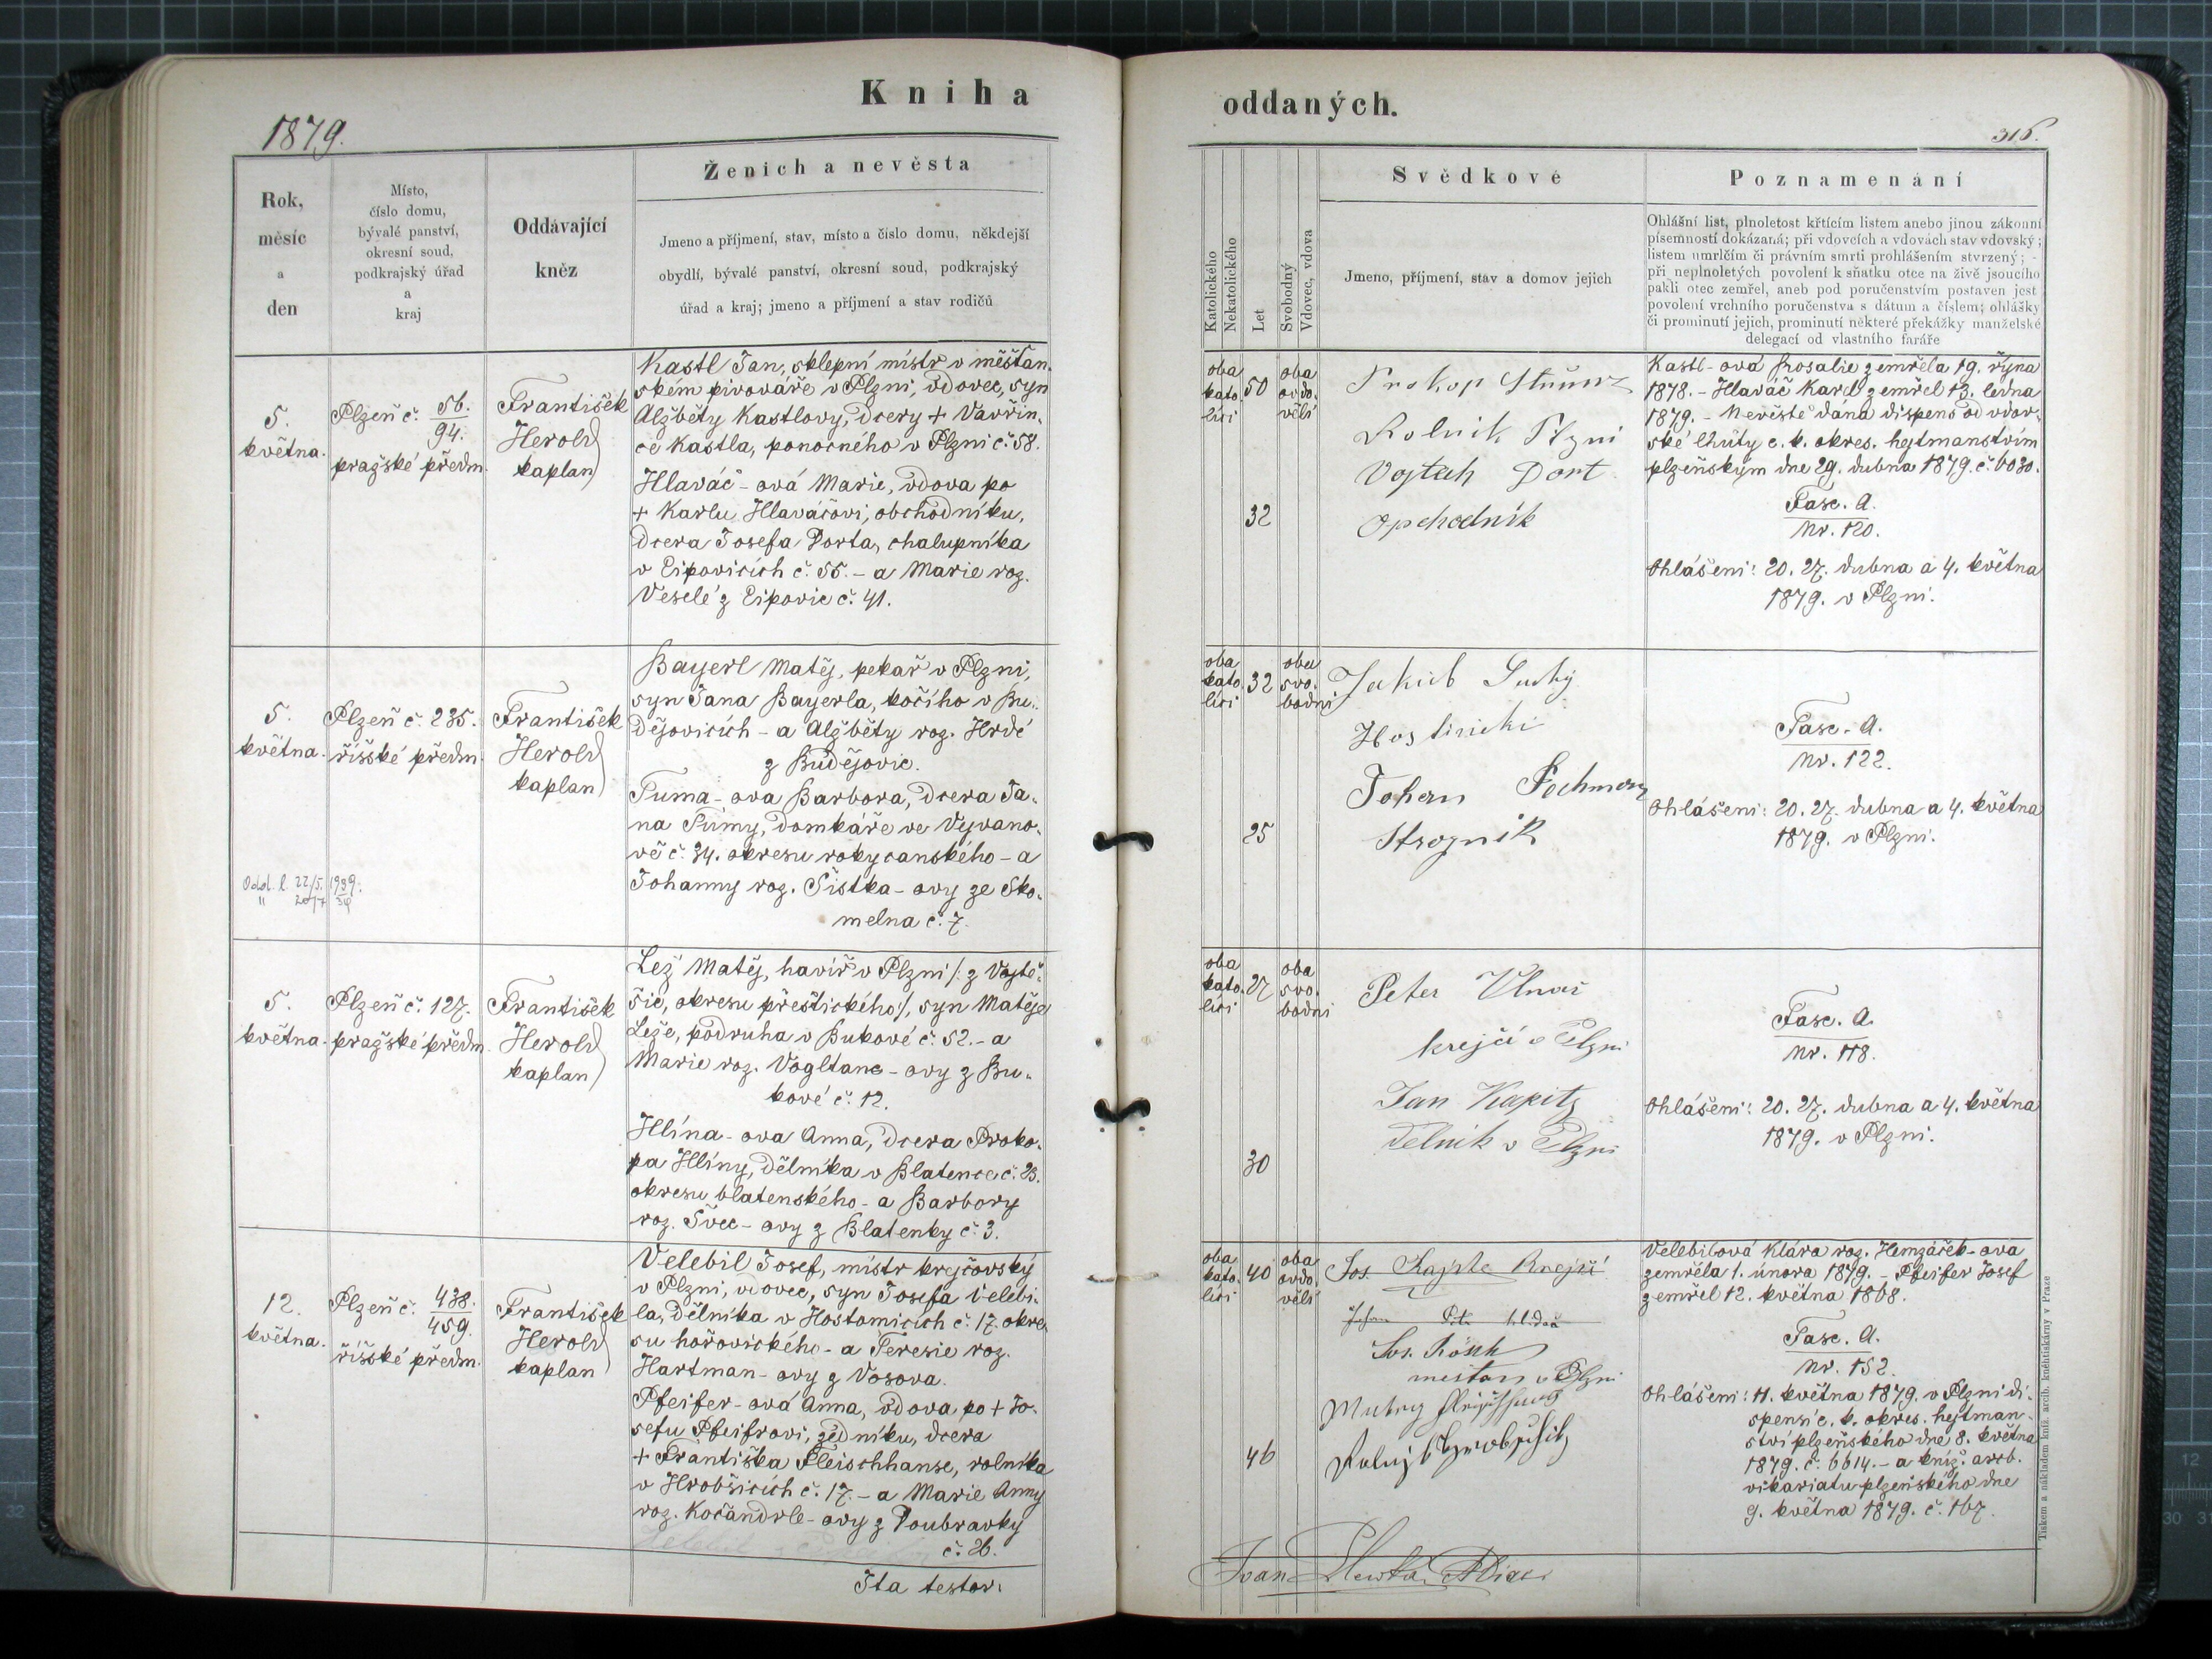 Kniha
oddaných.
1879.
316.
Rok,
měsíc
a
den
Místo,
číslo domu,
bývalé panství,
okresní soud,
podkrajský úřad
a
kraj
Oddávající
kněz
Ženich a nevěsta
Jmeno a příjmení, stav, místo a číslo domu, někdejší
obydlí, bývalé panství, okresní soud, podkrajský
úřad a kraj; jmeno a příjmení a stav rodičů
Katolického
Nekatolického
Let
Svobodný
Vdovec, vdova
Svědkové
Jmeno, příjmení, stav a domov jejich
Poznamenání
Ohlášní list, plnoletost křtícím listem anebo jinou zákonní
písemností dokázaná; při vdovcích a vdovách stav vdovský;
listem umrlčím či právním smrti prohlášením stvrzený; -
při neplnoletých povolení k sňatku otce na živě jsoucího
pakli otec zemřel, aneb pod poručenstvím postaven jest
povolení vrchního poručenstva s dátum a číslem; ohlášky
či prominutí jejich, prominutí některé překážky manželské
delegací od vlastního faráře
5.
května.
Plzeň č. 56.
94.
pražské předm.
František
Herold
kaplan
Kastl Jan, sklepní mistr v měšťan-
ském pivováře v Plzni, vdovec, syn
Alžběty Kastlovy, dcery + Vavřin-
ce Kastla, ponocného v Plzni č. 58.
Hlaváč-ová Marie, vdova po
+ Karlu Hlaváčovi, obchodníku,
dcera Josefa Dorta, chalupníka
v Ejpovicích č. 55. - a Marie roz.
Veselé z Ejpovic č. 41.
oba
kato.
líci
50
oba
ovdo.
vělí
32
Prokop
Rolnik Plzni
Vojtěch Dort
Opchodnik
Kastl-ová Rosalie zemřela 19. října
1878. - Hlaváč Karel zemřel 13. ledna
1879. - Nevěstě dána dispens od vdov-
ské lhůty c. k. okres. hejtmanstvím
plzeňským dne 29. dubna 1879. č. 6030.
Fasc. A.
Nr. 120.
Ohlášeni: 20. 27. dubna a 4. května
1879. v Plzni.
5.
května.
Plzeň č. 235.
říšské předm.
František
Herold
kaplan
Bayerl Matěj, pekař v Plzni,
syn Jana Bayerla, kočího v Bu-
dějovicích - a Alžběty roz. Hrdé
z Budějovic.
Tuma-ova Barbora, dcera Ja-
na Tumy, domkáře ve Vejvano-
vě č. 34. okresu rokycanského - a
Johanny roz. Šistka-ovy ze Sko-
melna č. 7.
Odd. l. 22/5. 1939.
" 20/7 39
oba
kato.
líci
32
oba
svo.
bodni
25
Jakub Suchý
Hostinski
Johan Pochman
Strojnik
Fasc. A.
Nr. 122.
Ohlášeni: 20. 27. dubna a 4. května
1879. v Plzni.
5.
května.
Plzeň č. 127.
pražské předm.
František
Herold
kaplan
Lež Matěj, havíř v Plzni /: z Vojtě-
šic, okresu přeštického/, syn Matěje
Leže, podruha v Bukové č. 52. - a
Marie roz. Vogltanc-ovy z Bu-
kové č. 12.
Hlína-ova Anna, dcera Proko-
pa Hlíny, dělníka v Blatence č. 23.
okresu blatenského - a Barbory
roz. Švec-ovy z Blatenky č. 3.
oba
kato.
líci
27
oba
svo.
bodni
30
Peter Vlnař
krejčí v Plzni
Jan Kapitz
Dělnik v Plzni
Fasc. A.
Nr. 118.
Ohlášeni: 20. 27. dubna a 4. května
1879. v Plzni.
12.
května.
Plzeň č. 438.
459.
říšské předm.
František
Herold
kaplan
Velebil Josef, mistr krejčovský
v Plzni, vdovec, syn Josefa Velebi-
la, dělníka v Hostomicích č. 17. okre-
su hořovického - a Teresie roz.
Hartman-ovy z Vosova.
Pfeifer-ová Anna, vdova po + Jo-
sefu Pfeifrovi, zedníku, dcera
+ Františka Fleischhanse, rolníka
v Hrobšicích č. 17. - a Marie Anny
roz. Kočandrle-ovy z Doubravky
č. 26.
Ita testor.
oba
kato.
líci
40
oba
ovdo.
vělí
46
Jos. Krejčí
Jos.
mestan v Plzni
Velebilová Klára roz. Hemzáček-ova
zemřela 1. února 1879. - Pfeifer Josef
zemřel 12. května 1868.
Fasc. A.
Nr. 152.
Ohlášeni: 11. května 1879. v Plzni di-
spensí c. k. okres. hejtman-
ství plzeňského dne 8. května
1879. č. 6614. - a kníž. arcb.
vikariatu plzeňského dne
9. května 1879. č. 167.
Tiskem a nákladem kníž. arcib. knihtiskárny v Praze